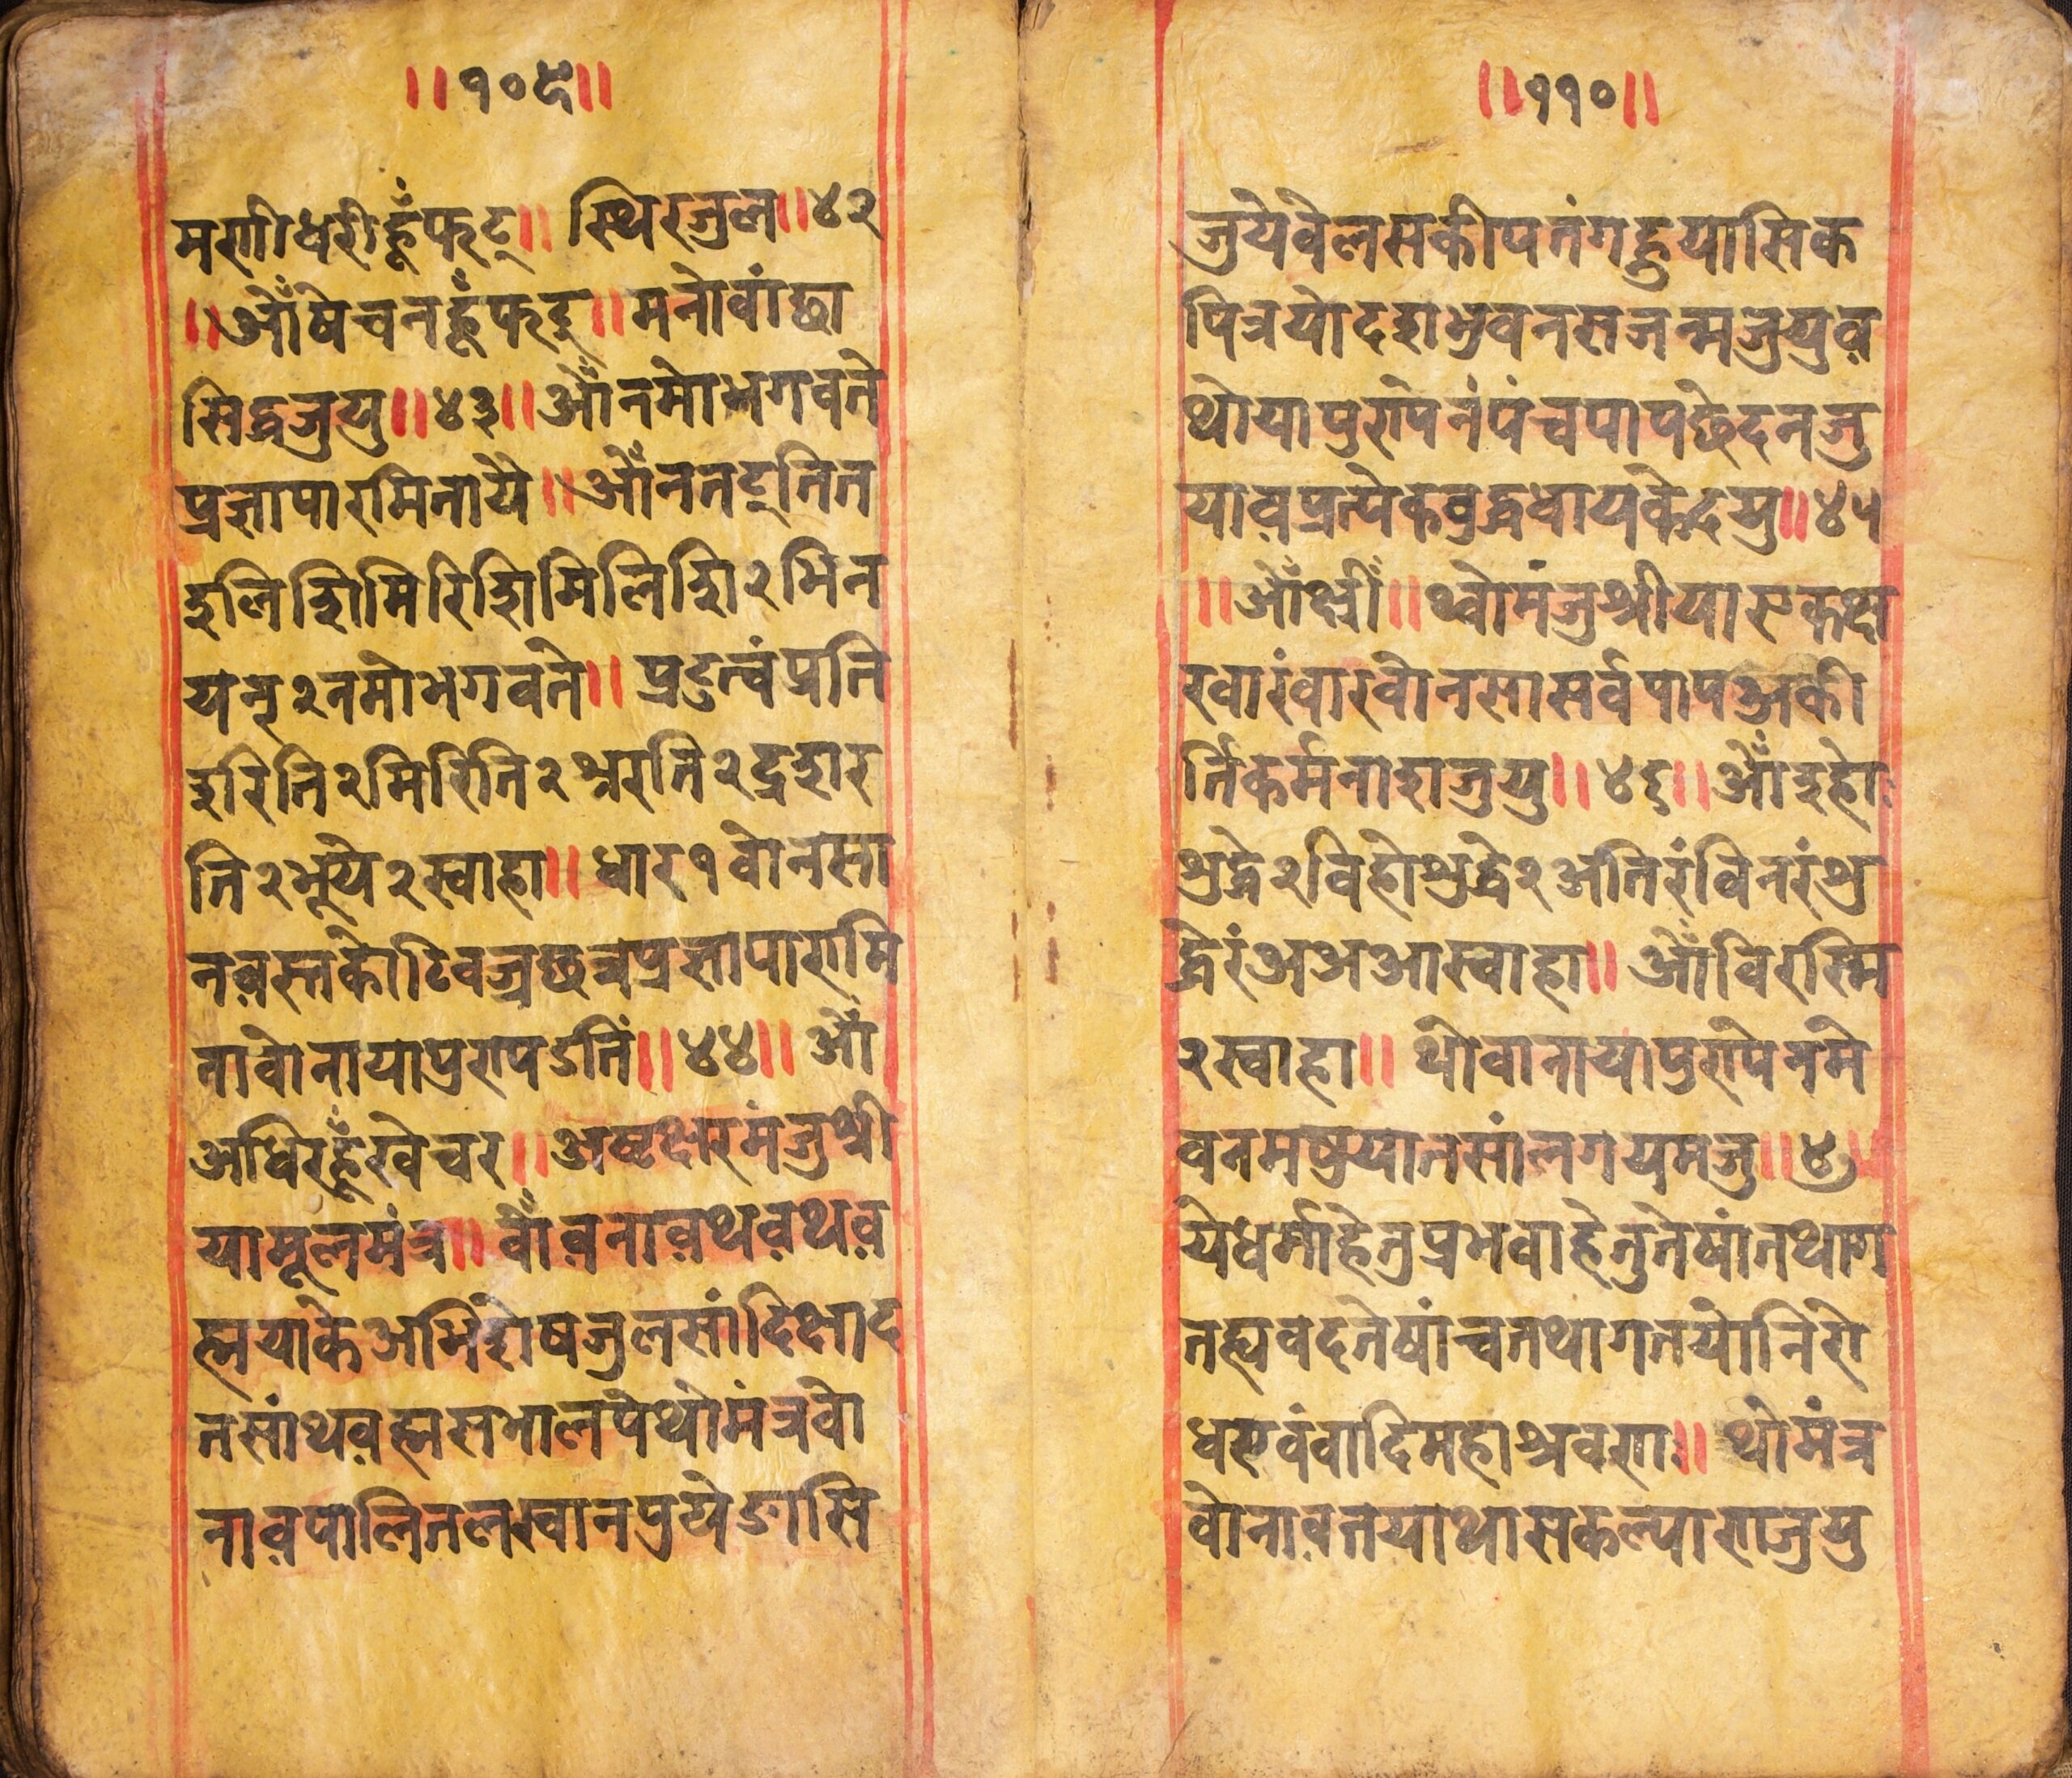 ॥१०९॥
मणीधरीहूँफट्॥ स्थिरजुल॥४२
॥ओँषेचनहूँफट्॥मनोवांछा
सिद्धजुयु॥४३॥ओँनमोभगवते
प्रज्ञापारमितायै॥ओँनतद्तित
इलिइिमिरिइिमिलिइि२भिन
यन्२नमोभगवते॥प्रदुत्वंप्रति
इरिति२मिरिति२श्नरति२द्रइार
ति२भूये२स्वाहा॥धार१वोनसा
नव़स्तकोटिवज्रछत्रप्रज्ञापारामि
तावोनायापुराप़ऽतिं॥४४॥ओँ
अधिरहूँखेचर॥अष्टक्षरमंजुश्री
यामूलमंत्र॥वोँव़नाव़थव़थव़
ह्मयाकेअभिशेषजुलसांदिक्षाद
तसांथव़ह्मसभालपेथोमंत्रवो
नाव़पालितलखानप्रयेङासि
॥११०॥
जुयेवेलसकीपतंगदुयासिक
पित्रयोदशभुवनसजन्मजुयुव़
थोयापुरापेनंपंचपापछेदनजु
याव़प्रत्येकबुद्धधायकेदयु॥४५
॥ओँक्ष्रीँ॥थ्वोमंजुश्रीयाएकक्ष
रवारंवारवोनसासर्वपापअकी
र्तिकर्मनाशजुयु॥४६॥ओँइहोः
श्रुद्धे२विहोश्रुद्धे२अतिरंविनरंश्रु
द्धेरंअअआस्वाहा॥ओँविरास्मि
२स्वाहा॥थोवानायापुरापेनमे
वनमष्ययातसांलगयमजु॥४७
येधर्माहेतुप्रभवाहेतुतेषांतथाग
तह्यवदतेषांचतथागतयोनिरो
धएवंवादिमहाश्रवणः॥थोमंत्र
वोनाव़तयाथासकल्याणजुयु